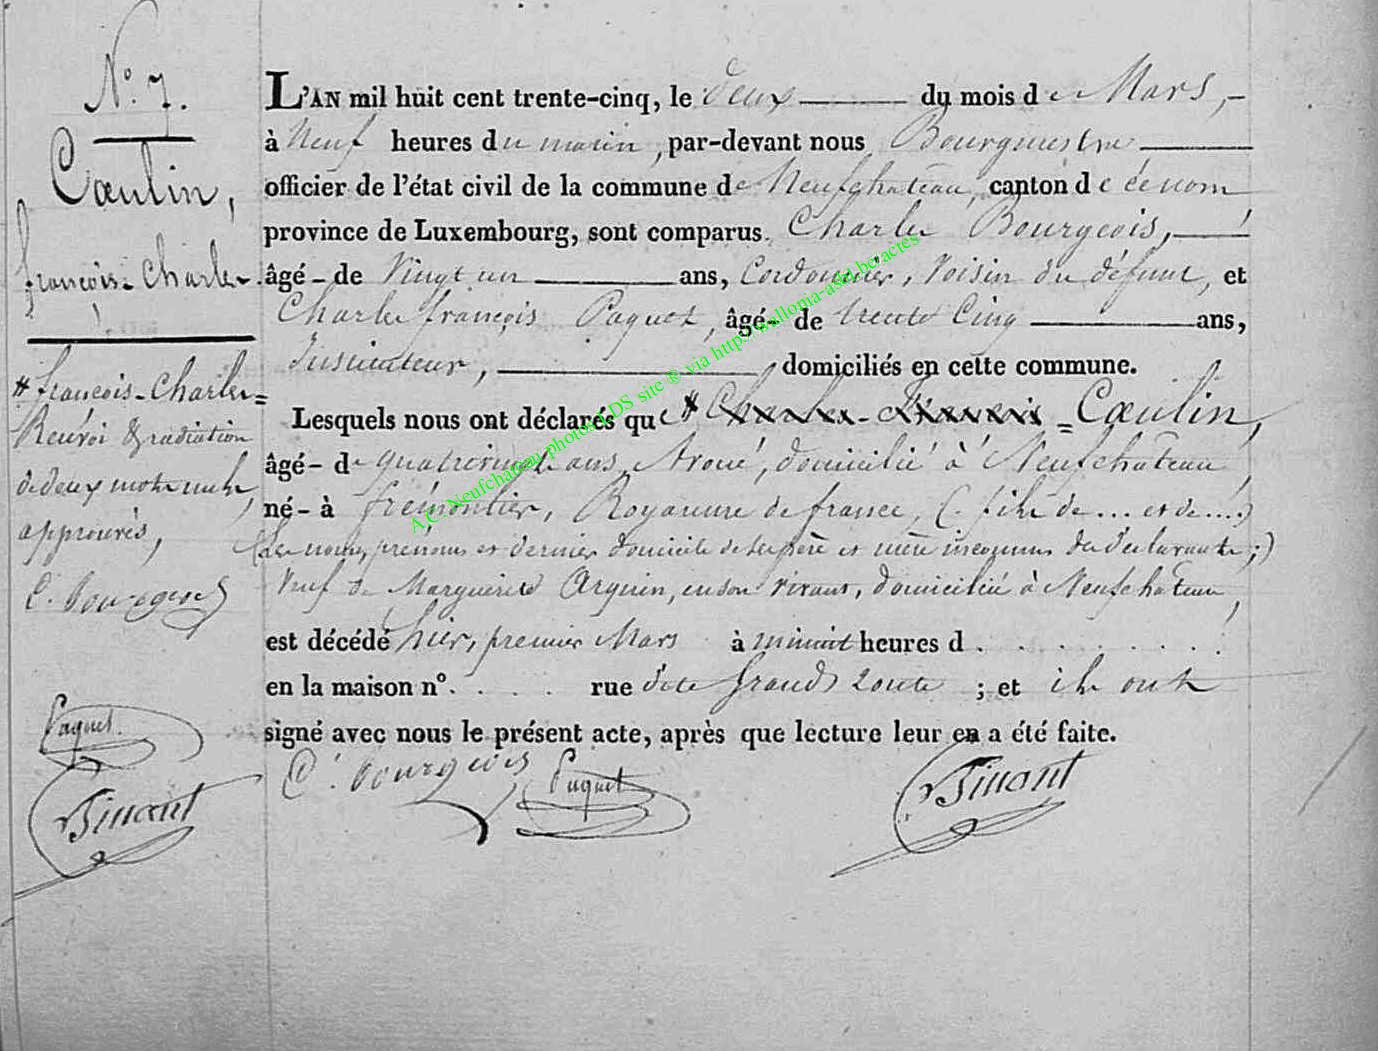 N.° 7.
Cœulin,
françois-Charles.
# françois-Charles =
Renvoi & radiation
de deux mots nuls,
approuvés,
C. Bourgeois
Paquet.
Tinant
L'AN mil huit cent trente-cinq, le deux du mois de Mars,
à Neuf heures du matin, par-devant nous Bourgmestre
officier de l'état civil de la commune de Neufchateau, canton de ce nom
province de Luxembourg, sont comparus Charles Bourgeois,
âgé - de Vingt un ans, Cordonnier, Voisin du défunt, et
Charles françois Paquet, âgé - de trente Cinq ans,
Instituteur, domiciliés en cette commune.
Lesquels nous ont déclarés que # Charles-François = Cœulin,
âgé - de quatrevingt ans, Avoué, domicilié à Neufchateau,
né - à frémontier, Royaume de france, (. fils de ... et de ....)
(Les noms, prénoms et dernier domicile de ses père et mère inconnus des déclarants;)
Veuf de Marguerite Arguin, en son vivant, domiciliée à Neufchateau,
est décédé hier, premier Mars à minuit heures d . . . . . . . .
en la maison n°. . . . . rue de la Grande Route ; et ils ont
signé avec nous le présent acte, après que lecture leur en a été faite.
C. Bourgeois Paquet Tinant
A.C. Neufchateau photos LDS site ® via http://wallonia-asbl.be/actes